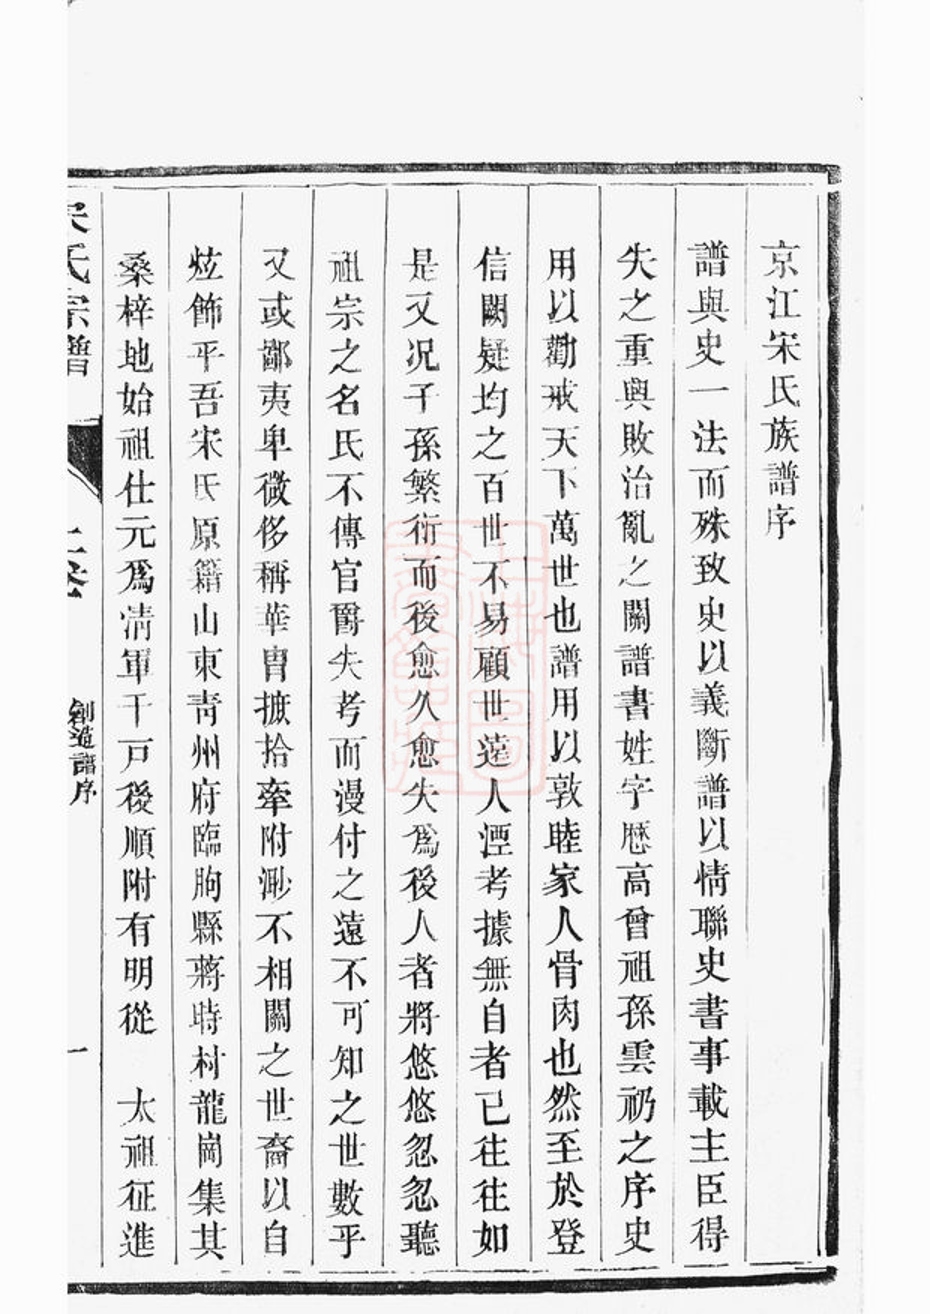 京江宋氏族譜序
譜與史一法而殊致史以義斷譜以情聯史書事載主臣得
失之重與敗治亂之關譜書姓字歷高曾祖孫雲礽之序史
用以勸戒天下萬世也譜用以敦睦家人骨肉也然至於登
信闕疑均之百世不易顧世遠人湮考據無自者已往往如
是又况子孫繁衍而後愈久愈失爲後人者將悠悠忽忽聽
祖宗之名氏不傳官爵失考而漫付之遠不可知之世數乎
又或鄙夷卑微侈稱華胄摭拾牽附渺不相關之世裔以自
炫飾乎吾宋氏原籍山東青州府臨朐縣蔣峙村龍崗集其
桑梓地始祖仕元爲凊軍千戸後順附有明從　太祖征進
宋氏宗譜
上卷
創造譜序
一